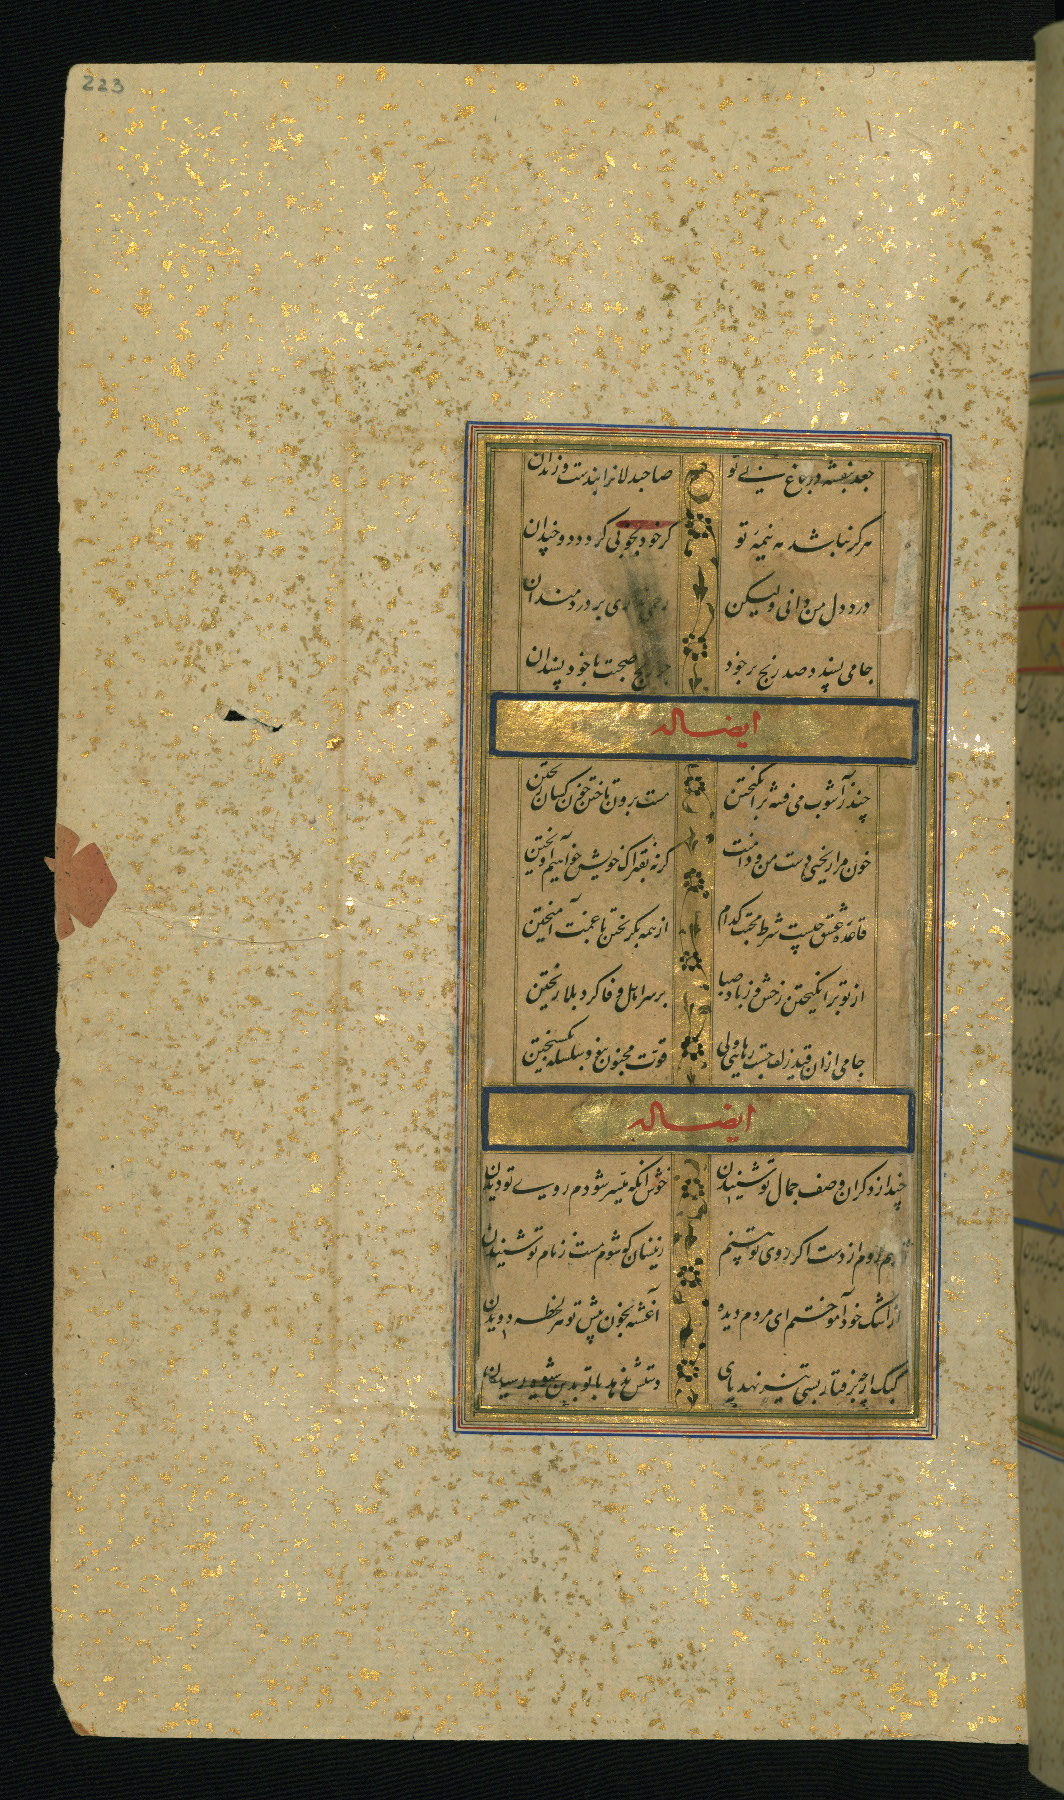 223
جعد بنفشه در باغ بی تو صاحبدلانرا بندست و زندان
هرگز نباشد مه نیمهٔ تو گر خود بخوبی گردد دو چندان
درد دل من دانی ولیکن بر دردمندان
جامی پسندد صد رنج بر خود صحبت با خود پسندان
ایضا له
چند ز آشوب می فتنه برانگیختن مست برون تاختن خون کسان ریختن
خون مرا ریختی دست من و دامنت گر نه بفتراک خویش خواهیم آویختن
قاعدهٔ عشق چیست شرط محبت کدام از همه بگریختن با غمت آمیختن
از تو برانگیختن رخش و ز باد صبا بر سر اهل وفا گرد بلا ریختن
جامی از ان قید زلف جست رهایی ولی قوت مجنون نبود سلسله بگسیختن
ایضا له
چند از دگران وصف جمال تو شنیدن خوش آنکه میسر شودم روی تو دیدن
روم از دست اگر روی تو بینم زینسان که شوم مست ز نام تو شنیدن
از اشک خود آموختم ای مردم دیده آغشته بخون پیش تو هر لحظه دویدن
کبک ارچه برفتار بسی تیز نهد پای